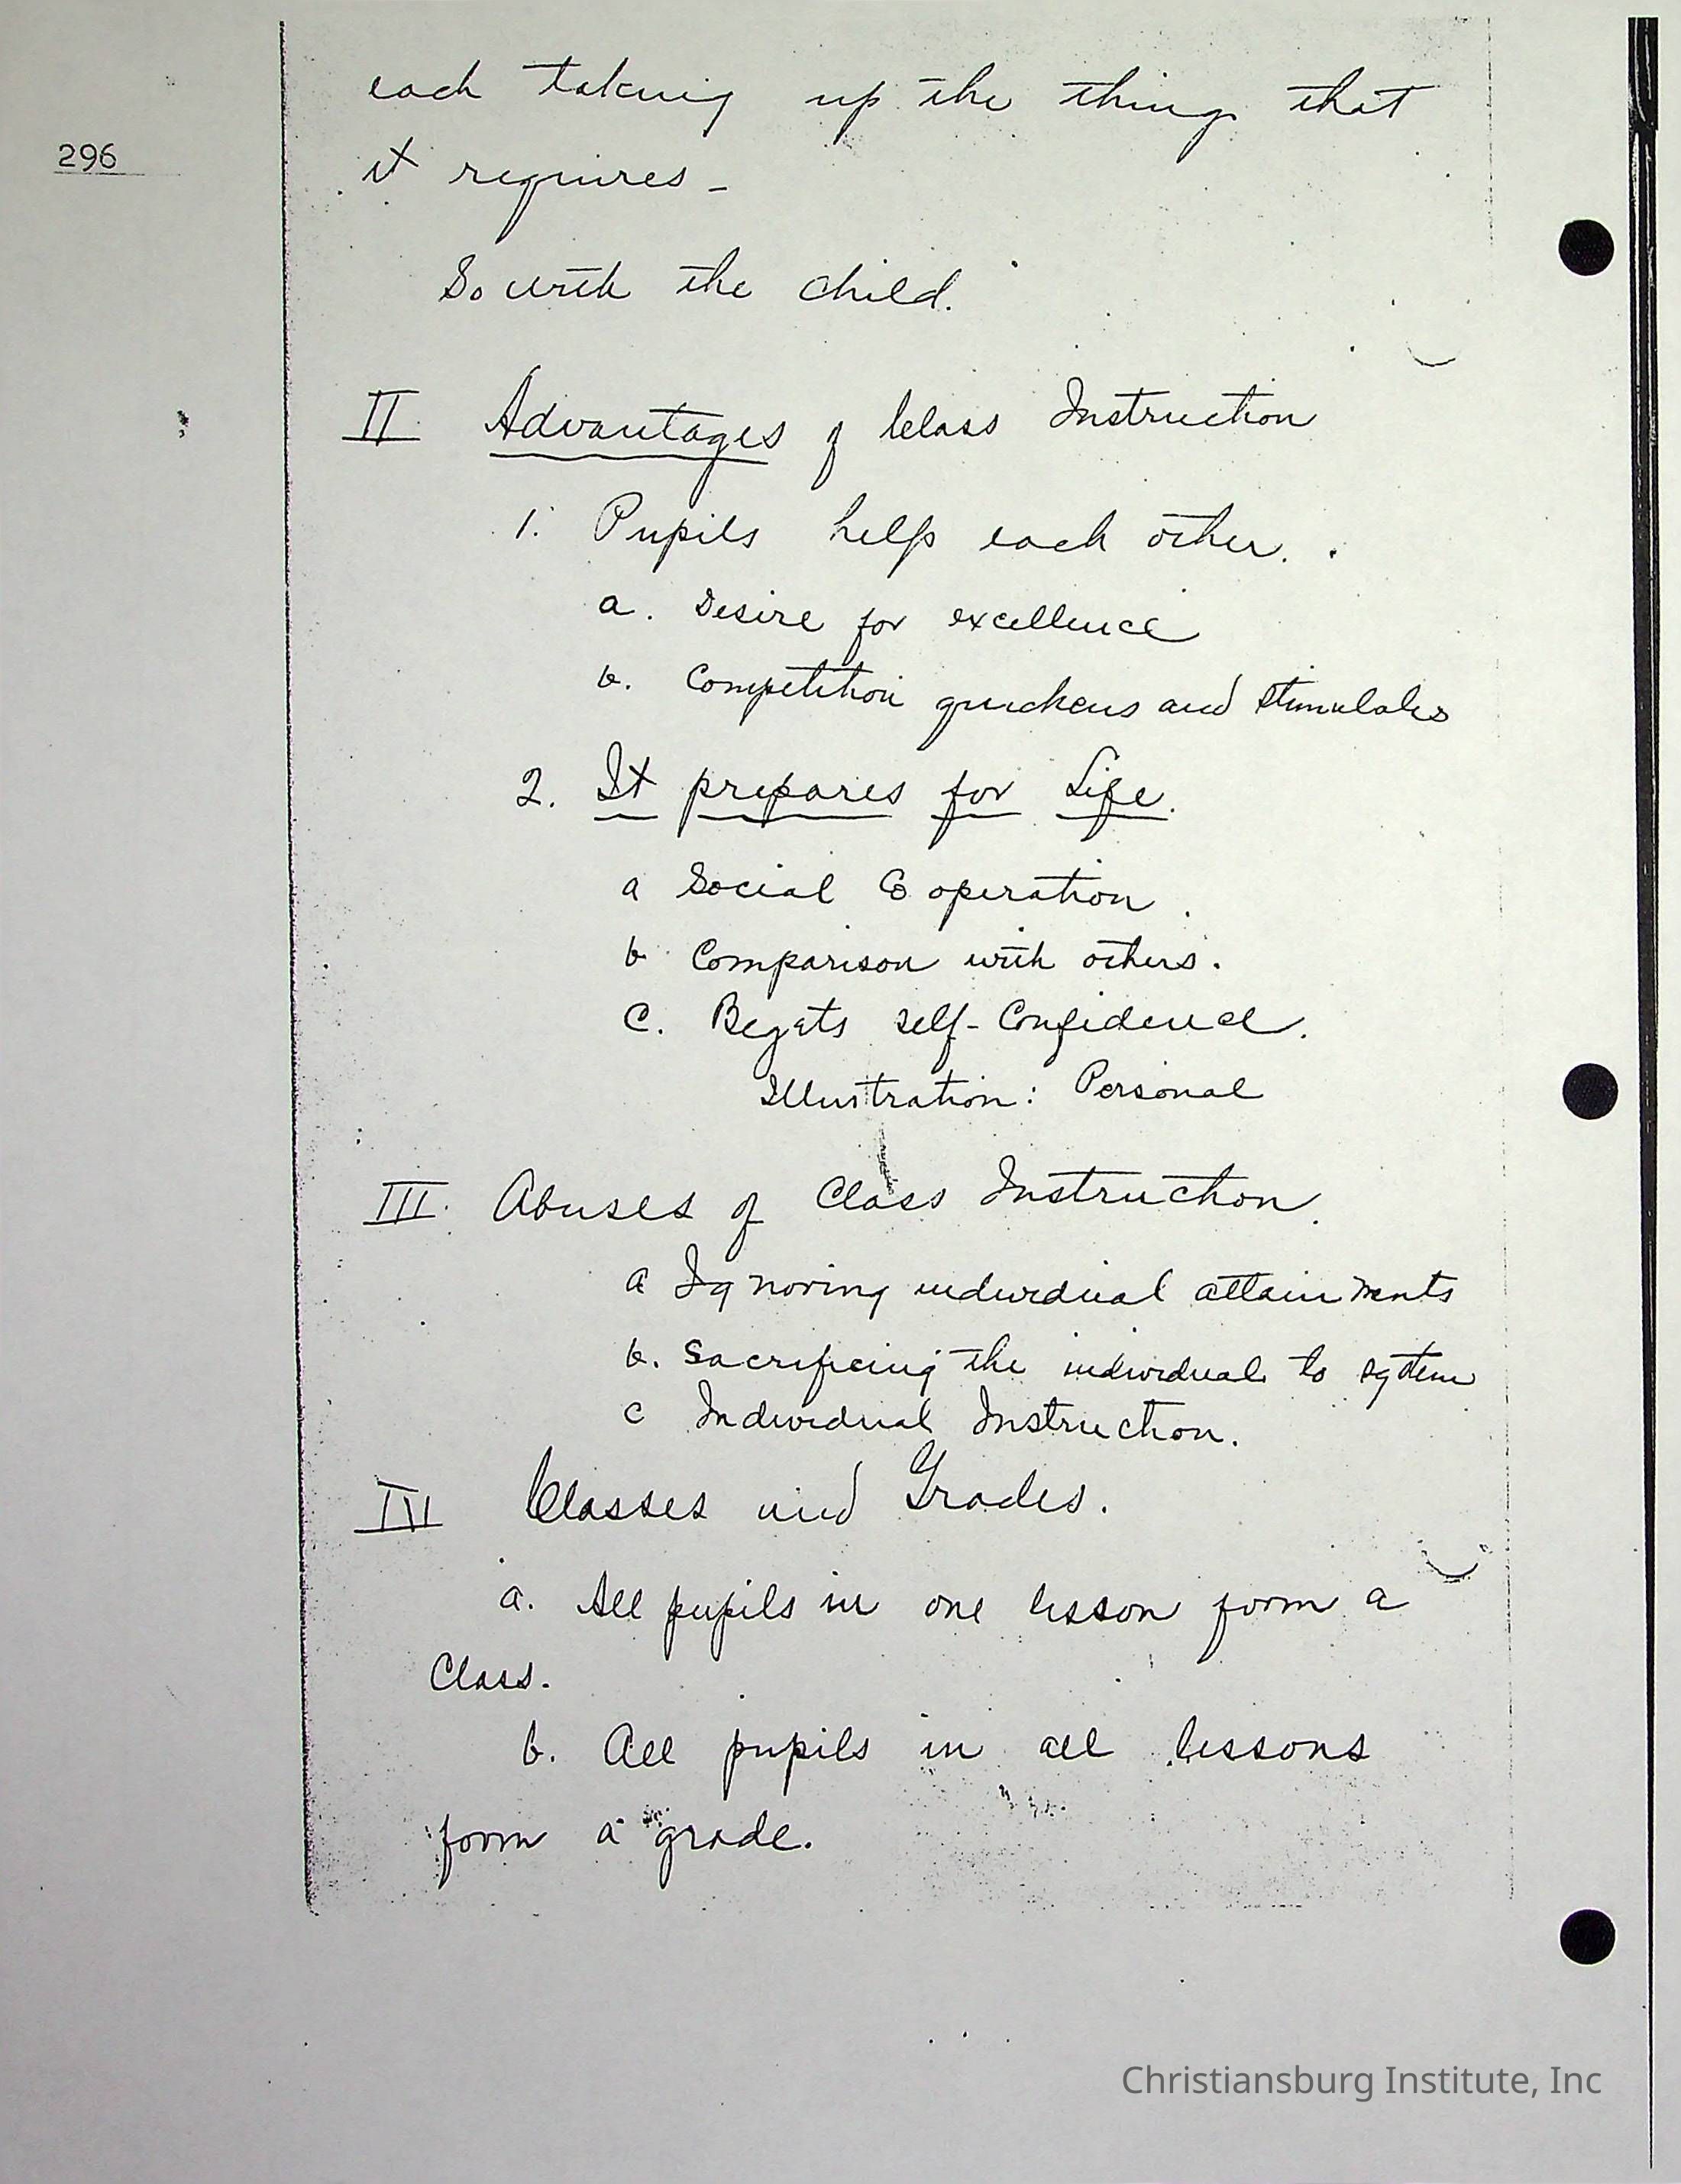 each taking up the thing that
296
it requires -
So with the child.
II Advantages of Class Instruction
1. Pupils help each other.
a. Desire for excellence
b. Competition quickens and stimulates
2. It prepares for Life.
a Social Cooperation.
b Comparison with others.
C. Begets self-Confidence.
Illustration: Personal
III. Abuses of Class Instruction.
a Ignoring individual attainments
b. Sacrificing the individual to system
c Individual Instruction.
IV Classes and Grades.
a. All pupils in one lesson form a
Class.
b. All pupils in all lessons
form a grade.
Christiansburg Institute, Inc